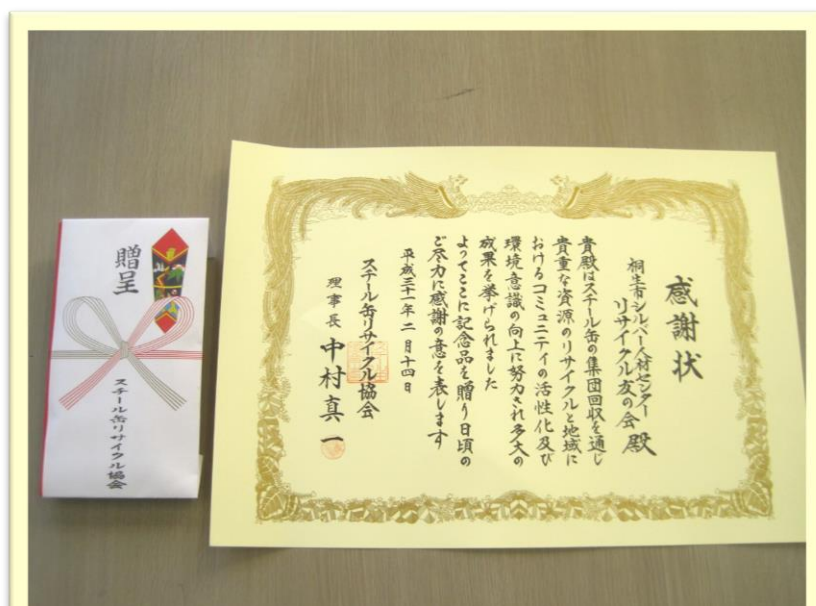 感謝状
桐生市シルバー人材センター
リサイクル友の会 殿
貴殿はスチール缶の集団回収を通じ
貴重な資源のリサイクルと地域に
おけるコミュニティの活性化及び
環境意識の向上に努力され多大の
成果を挙げられました
よってここに記念品を贈り日頃の
ご尽力に感謝の意を表します
平成三十一年二月十四日
スチール缶リサイクル協会
理事長 中村真一
贈呈
スチール缶リサイクル協会